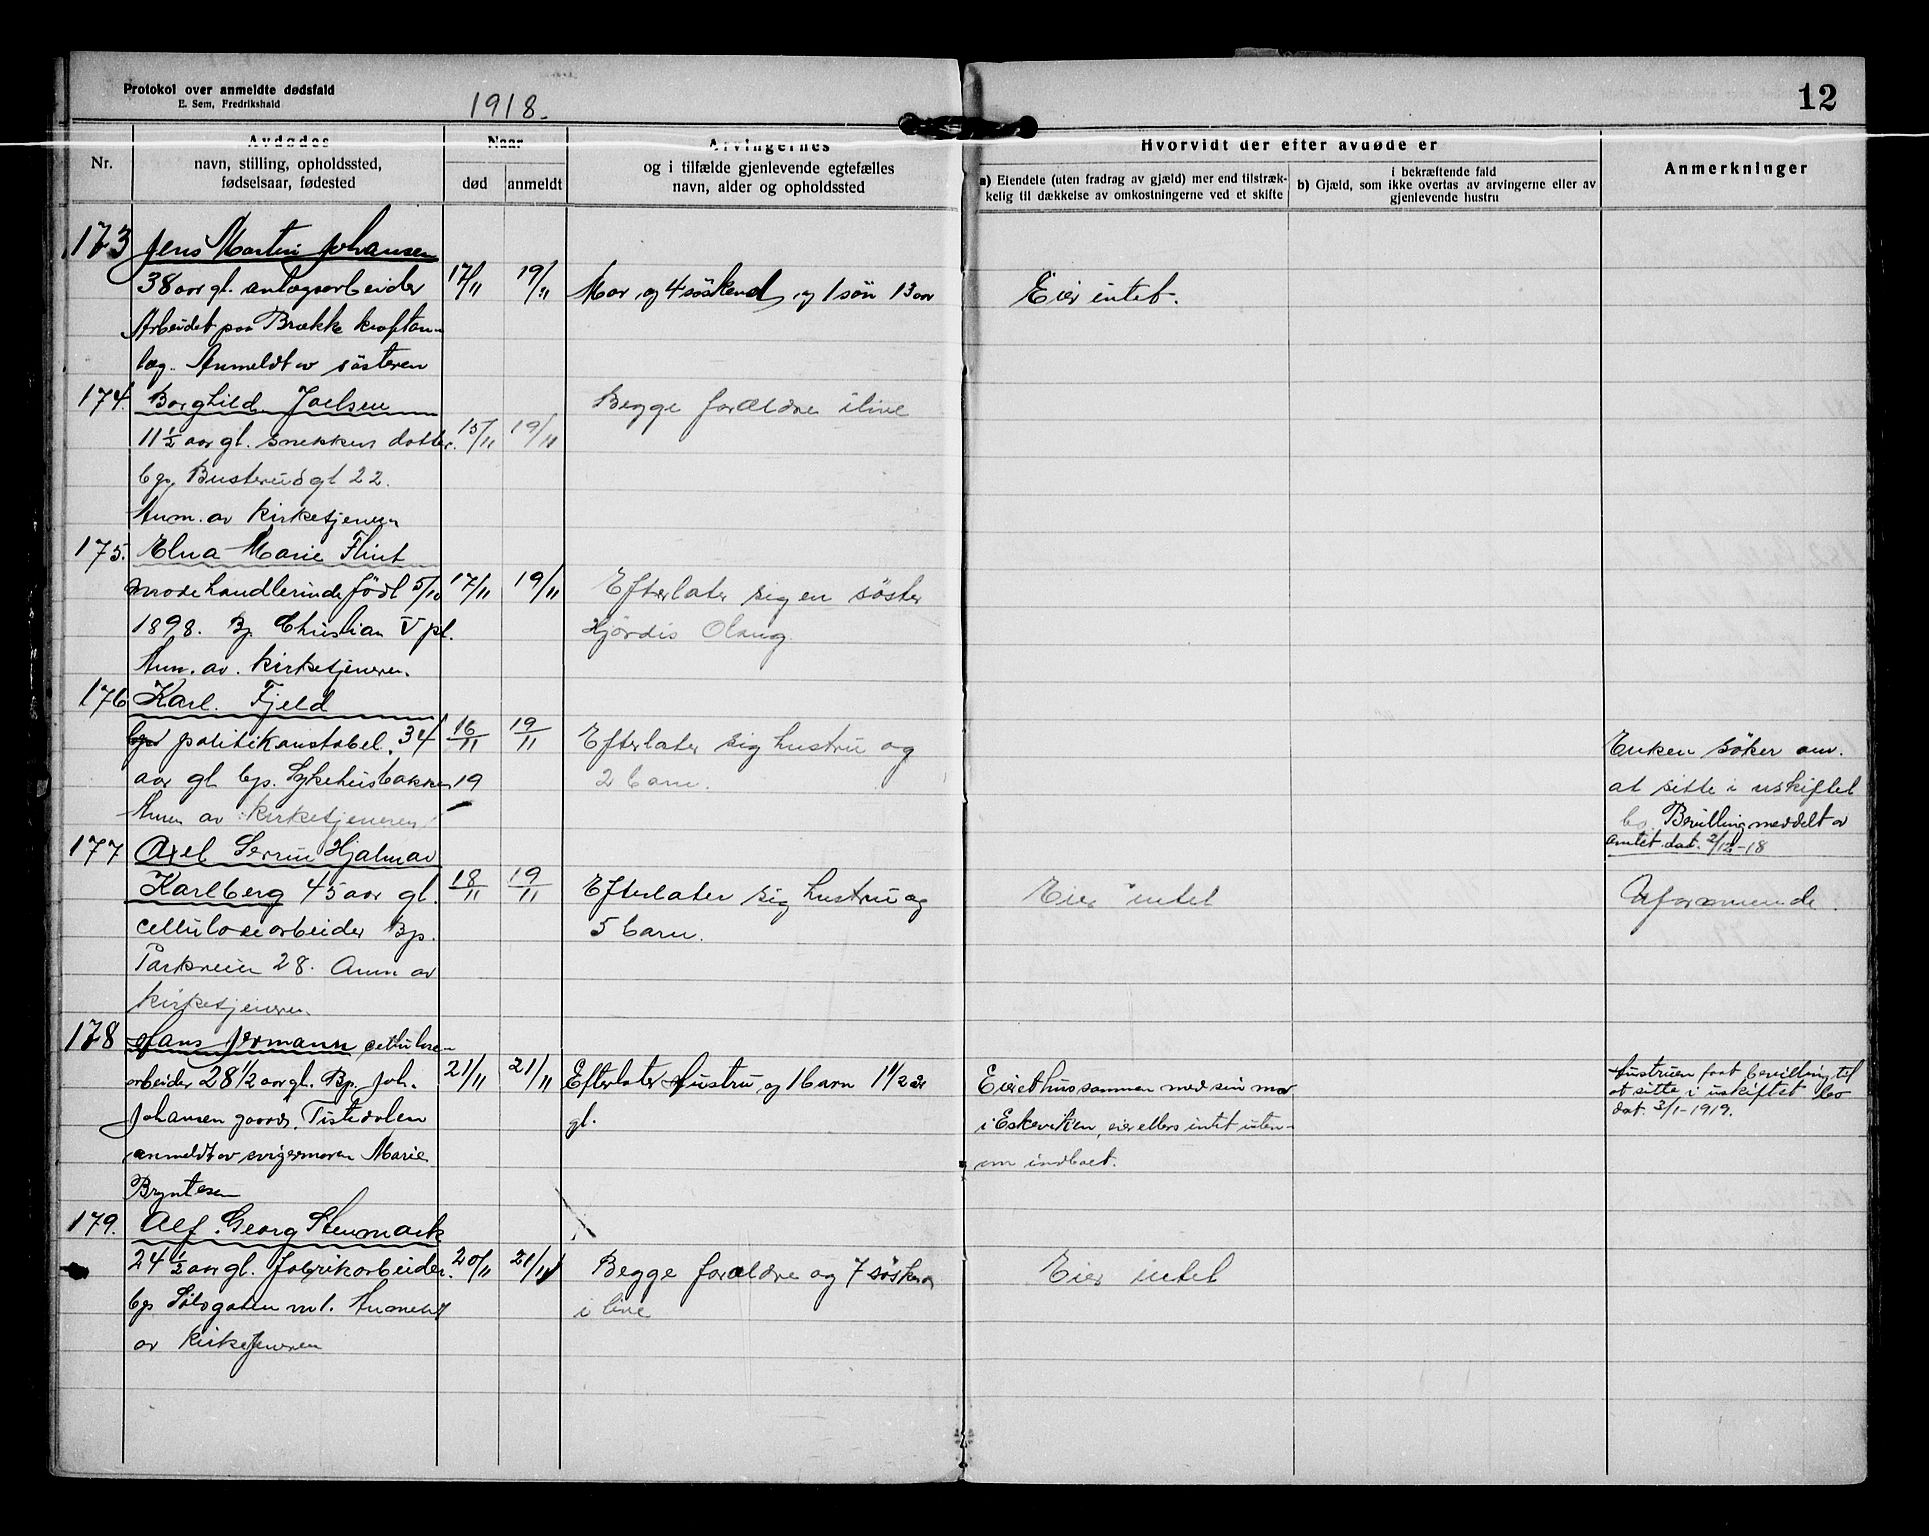 Protokol over anmeldte dødsfald
E. Sem, Fredrikshald
1918.
12
Nr.
Avdødes
navn, stilling, opholdssted,
fødselsaar, fødested
Naar
død
anmeldt
Arvingernes
og i tilfælde gjenlevende egtefælles
navn, alder og opholdssted
Hvorvidt der efter avdøde er
a) Eiendele (uten fradrag av gjæld) mer end tilstræk-
kelig til dækkelse av omkostningerne ved et skifte
i bekræftende fald
b) Gjæld, som ikke overtas av arvingerne eller av
gjenlevende hustru
Anmerkninger
173 Jens Martin Johansen
38 aar gl. anlægsarbeider 17/11 19/11 Mor og 4 søskend og 1 søn 13 aar Eier intet.
Arbeidet paa Brække kraftan-
læg. Anmeldt av søsteren
174. Borghild Joelsen Begge forældre ilive
11 1/2 aar gl. snekkers datter. 15/11 19/11
bp. Busterudgt 22.
Anm. av kirketjeneren
175. Elna Marie Flint
modehandlerinde født 5/10 17/11 19/11 Efterlater sig en søster
1898. Bp Christian V pl. Hjørdis Olaug.
Anm. av. kirketjeneren.
176 Karl. Fjeld
politikonstabel. 34 16/11 19/11 Efterlater sig hustru og Enken søker om.
aar gl bp. Sykehusbakken 19 2 barn. at sitte i uskiftet
Anm av kirketjeneren bo. Bevilling meddelt av
amtet dat. 2/12-18
177 Axel Hjalmar
Karlberg 45 aar gl. 18/11 19/11 Efterlater sig hustru og Eier intet Uformuende.
cellulosearbeider Bp. 5 barn.
Parkveien 28. Anm av
kirketjeneren.
178 Hans Jermann cellulose-
arbeider 28 1/2 aar gl. Bp. Joh. 21/11 21/11 Efterlater Hustru og 1 barn 1 1/2 år Eier et hus sammen med sin mor Hustruen faat bevilling til
Johansen gaard, Tistedalen gl. i Eskeviken, eier ellers intet uten- at sitte i uskiftet bo
dat. 3/1-1919.
anmeldt av svigermoren Marie om indboet.
Bryntesen
179. Alf Georg Stenmark
24 1/2 aar gl. fabrikarbeider. 20/11 21/11 Begge forældre og 7 søsken Eier intet
bp Sølvgaten Anmeldt i live
av kirketjeneren